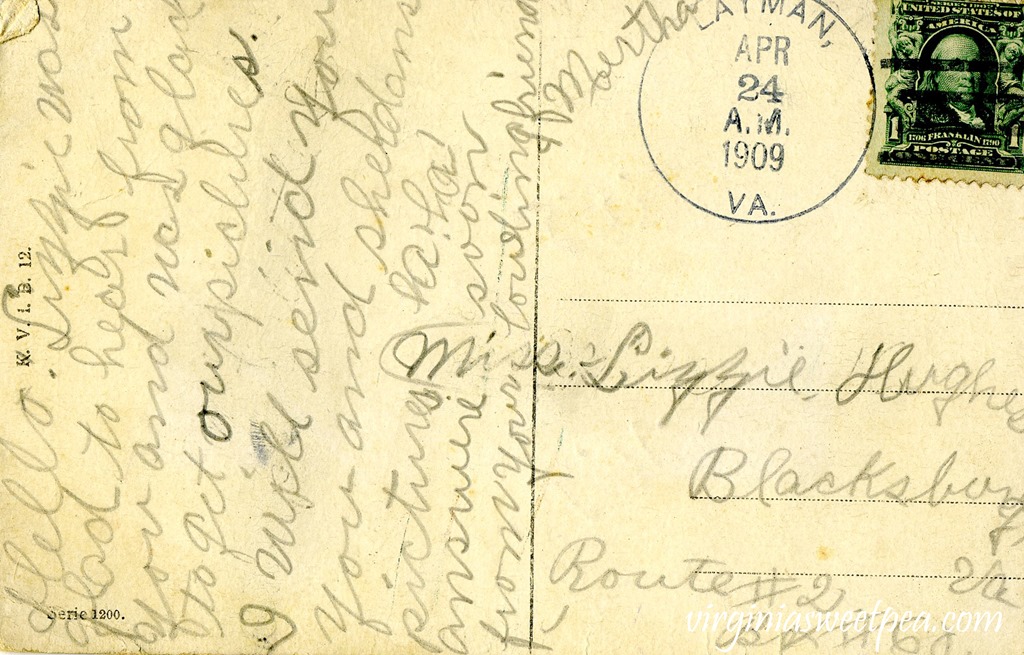 Hello. Lizzie was
glad to hear from
you and was glad
to get our pisicultures.
I will send you
your and Sheldans
pictures ha ha
answire soon
from your loving friend
Mertha
K. V. i. B. 12.
Serie 1200.
LAYMAN,
APR
24
A.M.
1909
VA.
SERIES 1902
UNITED STATES OF
AMERICA
1706 FRANKLIN 1790
1 1
POSTAGE
ONE CENT
Miss. Lizzie. Hughes
Blacksburg
Va
Route #2
virginiasweetpea.com